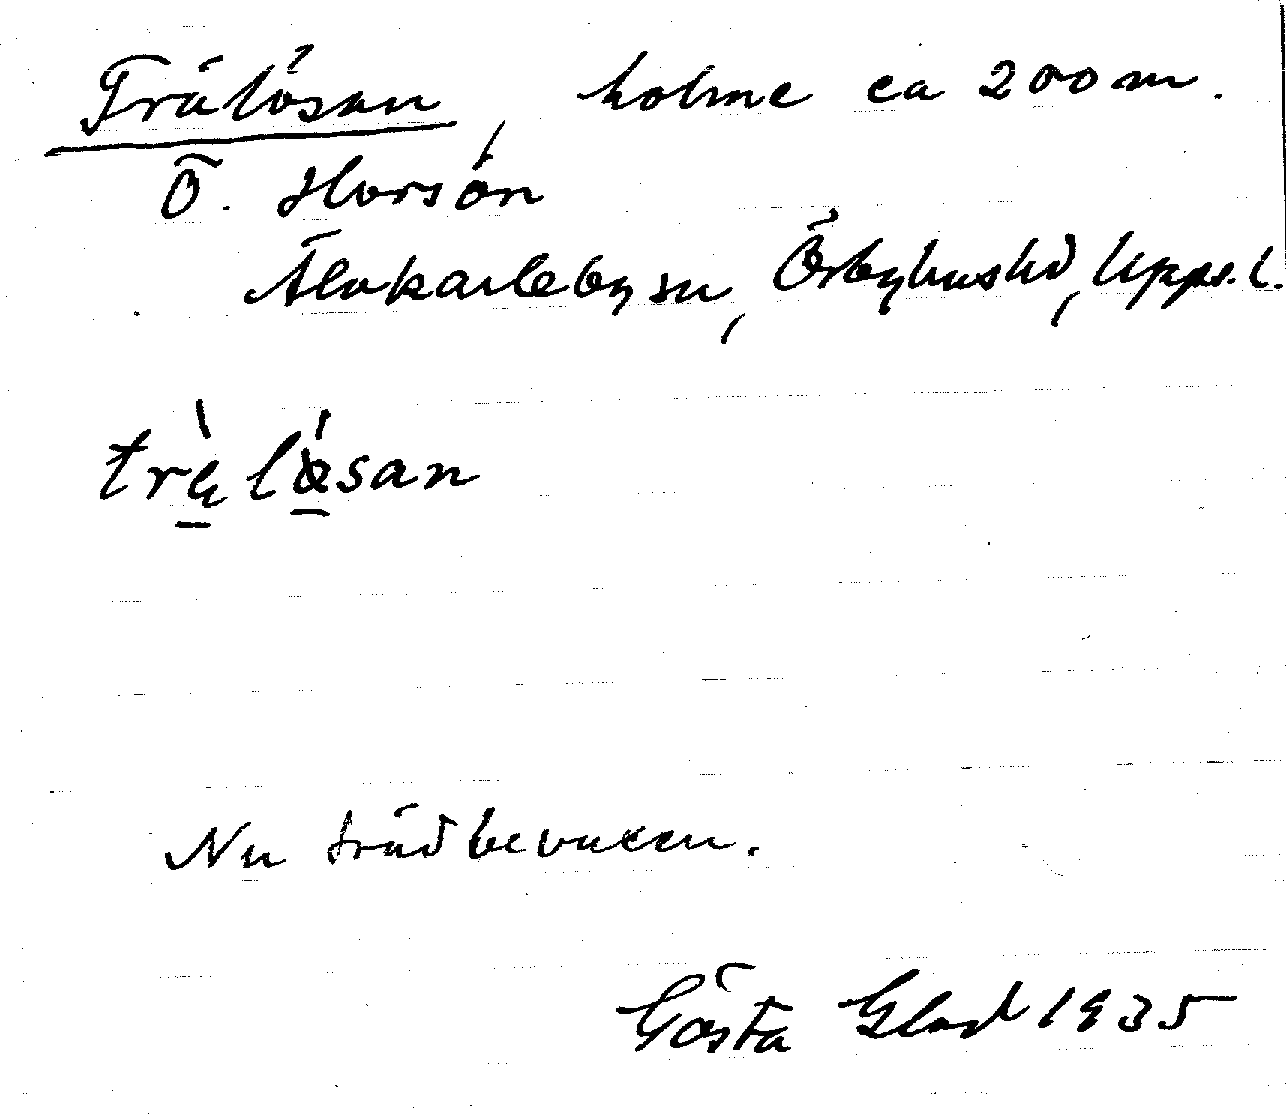 Trälösan, holme ca 200 m.
Ö. Horsön
Älvkarleby sn, Örbyhus hd, Upps. l.
trälösan
Nu trädbevuxen.
Gösta Glad 1935